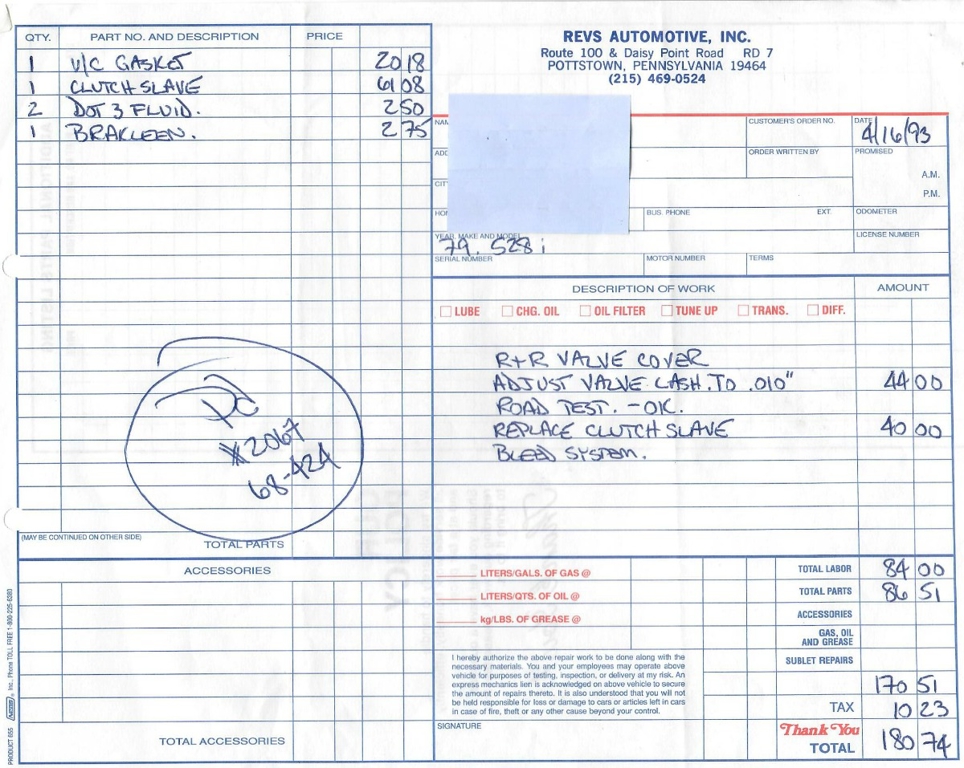 QTY. PART NO. AND DESCRIPTION PRICE
1 V/C GASKET 20 18
1 CLUTCH SLAVE 61 08
2 DOT 3 FLUID. 2 50
1 BRAKLEEN. 2 75
(MAY BE CONTINUED ON OTHER SIDE) TOTAL PARTS
ACCESSORIES
TOTAL ACCESSORIES
REVS AUTOMOTIVE, INC.
Route 100 & Daisy Point Road RD 7
POTTSTOWN, PENNSYLVANIA 19464
(215) 469-0524
CUSTOMER'S ORDER NO. DATE 4/16/93
ORDER WRITTEN BY PROMISED
A.M.
P.M.
BUS. PHONE EXT. ODOMETER
YEAR, MAKE AND MODEL LICENSE NUMBER
79. 528i
SERIAL NUMBER MOTOR NUMBER TERMS
DESCRIPTION OF WORK AMOUNT
LUBE CHG. OIL OIL FILTER TUNE UP TRANS. DIFF.
R+R VALVE COVER
ADJUST VALVE LASH. TO .010" 44 00
ROAD TEST. - OK.
REPLACE CLUTCH SLAVE 40 00
BLEED SYSTEM.
PD
#2067
68-424
LITERS/GALS. OF GAS @ TOTAL LABOR 84 00
LITERS/QTS. OF OIL @ TOTAL PARTS 86 51
kg/LBS. OF GREASE @ ACCESSORIES
GAS, OIL
AND GREASE
SUBLET REPAIRS
170 51
TAX 10 23
Thank You
TOTAL 180 74
I hereby authorize the above repair work to be done along with the
necessary materials. You and your employees may operate above
vehicle for purposes of testing, inspection, or delivery at my risk. An
express mechanics lien is acknowledged on above vehicle to secure
the amount of repairs thereto. It is also understood that you will not
be held responsible for loss or damage to cars or articles left in cars
in case of fire, theft or any other cause beyond your control.
SIGNATURE
PRODUCT 655 Inc., Phone TOLL FREE 1-800-225-6380